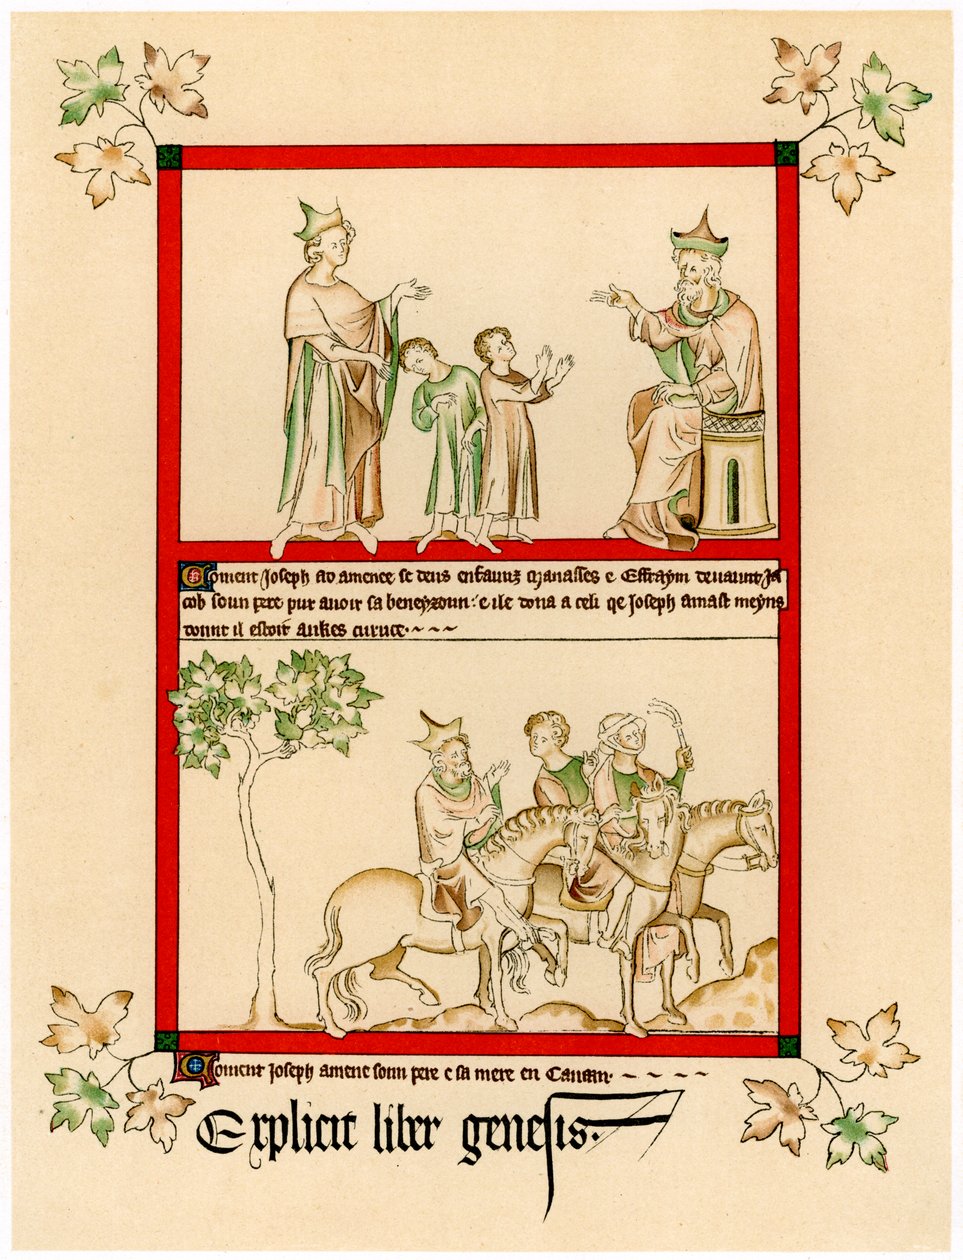 Coment Joseph ad amenee se deus enfaunz Manasses e Effraym devaunt Ja
cob soun pere pur avoir sa beneyzoun : e ile dona a celi qe Joseph amast meyns
dount il estoit aukes curuce.
Coment Joseph amene soun pere e sa mere en Canaan.
Explicit liber genesis.